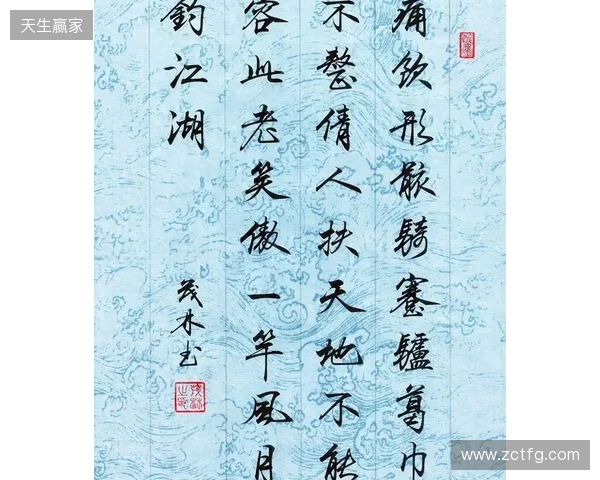 天生赢家
痛飲形骸騎蹇驢葛巾
不整倩人扶天地不能
容此老笑傲一竿風月
釣江湖
茂林书
www.zctfg.com